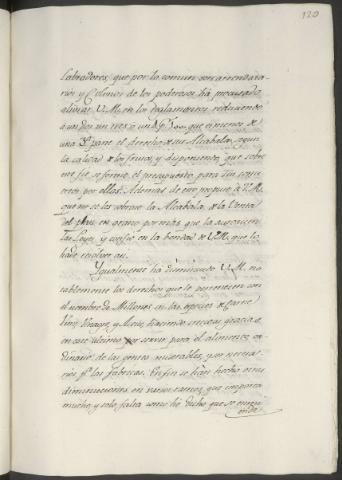 120
labradores, que por lo comun son arrendata-
rios y Colonos de los poderosos ha procurado
aliviar V.M. en los Reglamentos reduciendo
a un dos un tres o un 4 p% que es menos de
una 3ª parte el derecho de sus Alcabalas, segun
la calidad de los frutos, y disponiendo que sobre
este pie se forme el presupuesto para sus concier-
tos por ellas. Ademas de esto propuse a V.M.
que no se les cobrase la Alcabala de la Venta
del en grano por mas que la autoricen
las Leyes y confio en la bondad de V.M. que lo
hade resolver asi.
Igualmente ha disminuido V.M. no-
tablemente los derechos que le pertenecen con
el nombre de Millones en las especies de Carne
Vino, Vinagre, y Aceite, haciendo muchas gracias
en este ultimo por servir para el alimento or-
dinario de las gentes miserables, y ser necesa-
rios pª las fabricas. En fin se han hecho otras
disminuciones en varios ramos que importan
mucho, y solo falta como he dicho que se entien-